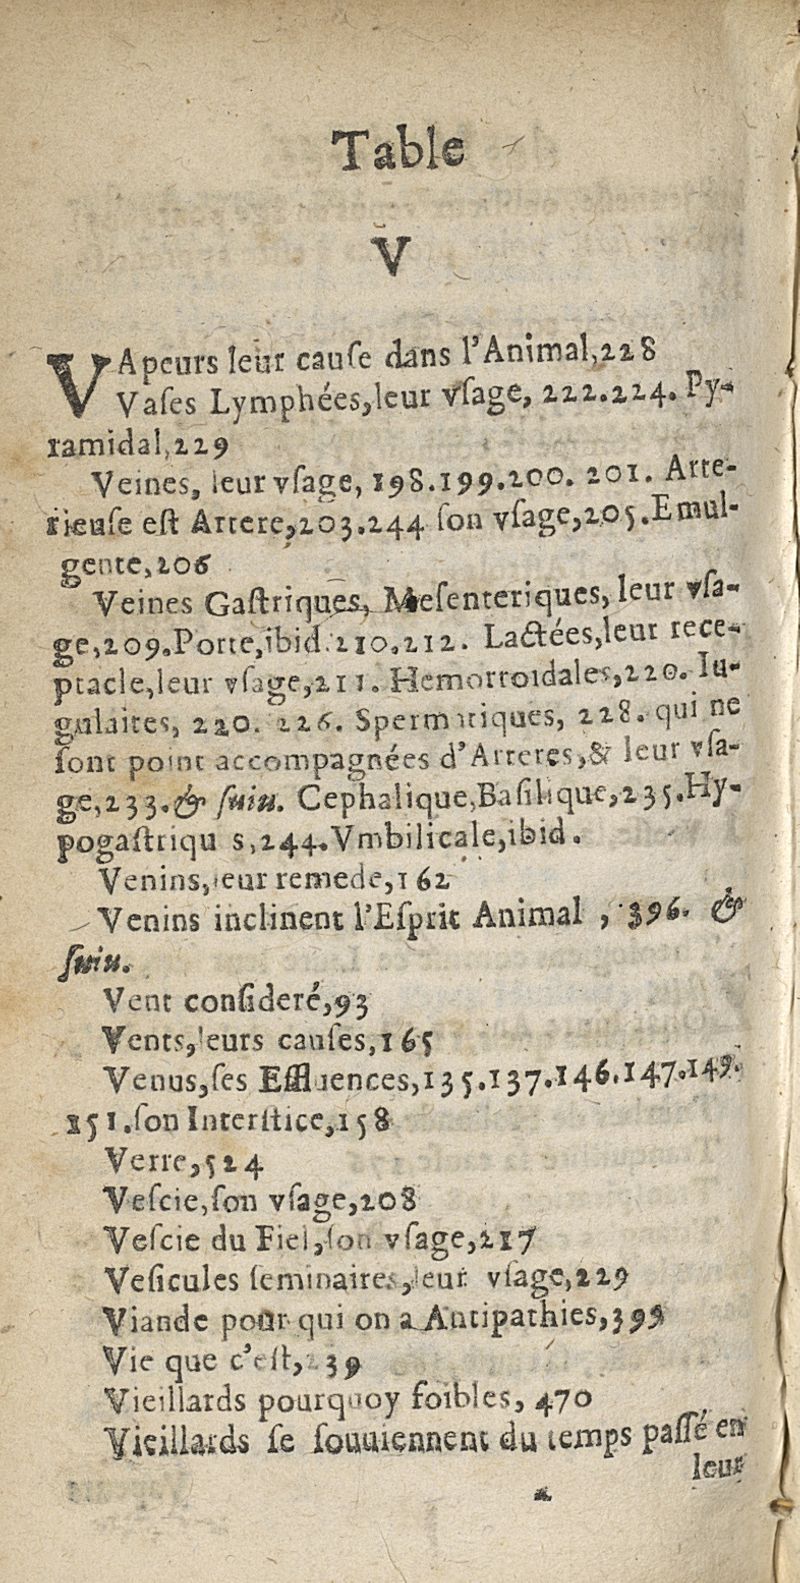 Table
V
VApeurs leur cauſe dans l'Animal,228
Vaſes Lymphées,leur vſage, 222.224. Py-
ramidal,229
Veines, leur vſage, 198.199.200. 201. Arte-
rieuſe eſt Artere,203.244 ſon vſage,205.Emul-
gente,206
Veines Gaſtriques, Meſenteriques, leur vſa-
ge,209.Porte,ibid.210.212. Lactées,leur rece-
ptacle,leur vſage,211. Hemorroidales,220. Iu-
gulaires, 220. 226. Spermatiques, 228. qui ne
ſont point accompagnées d'Arteres,& leur vſa-
ge,233.& ſuiu. Cephalique,Baſilique,235.Hy-
pogaſtriqu s,244.Vmbilicale,ibid.
Venins,leur remede,162
Venins inclinent l'Eſprit Animal , 396. &
ſuiu.
Vent conſideré,93
Vents,leurs cauſes,165
Venus,ſes Effluences,135.137.146.147.149.
151.ſon Interſtice,158
Verre,524
Veſcie,ſon vſage,208
Veſcie du Fiel,ſon vſage,217
Veſicules ſeminaires,leur vſage,229
Viande pour qui on a Antipathies,399
Vie que c'eſt, 39
Vieillards pourquoy foibles, 470
Vieillards ſe ſouuiennent du temps paſſé en
leur